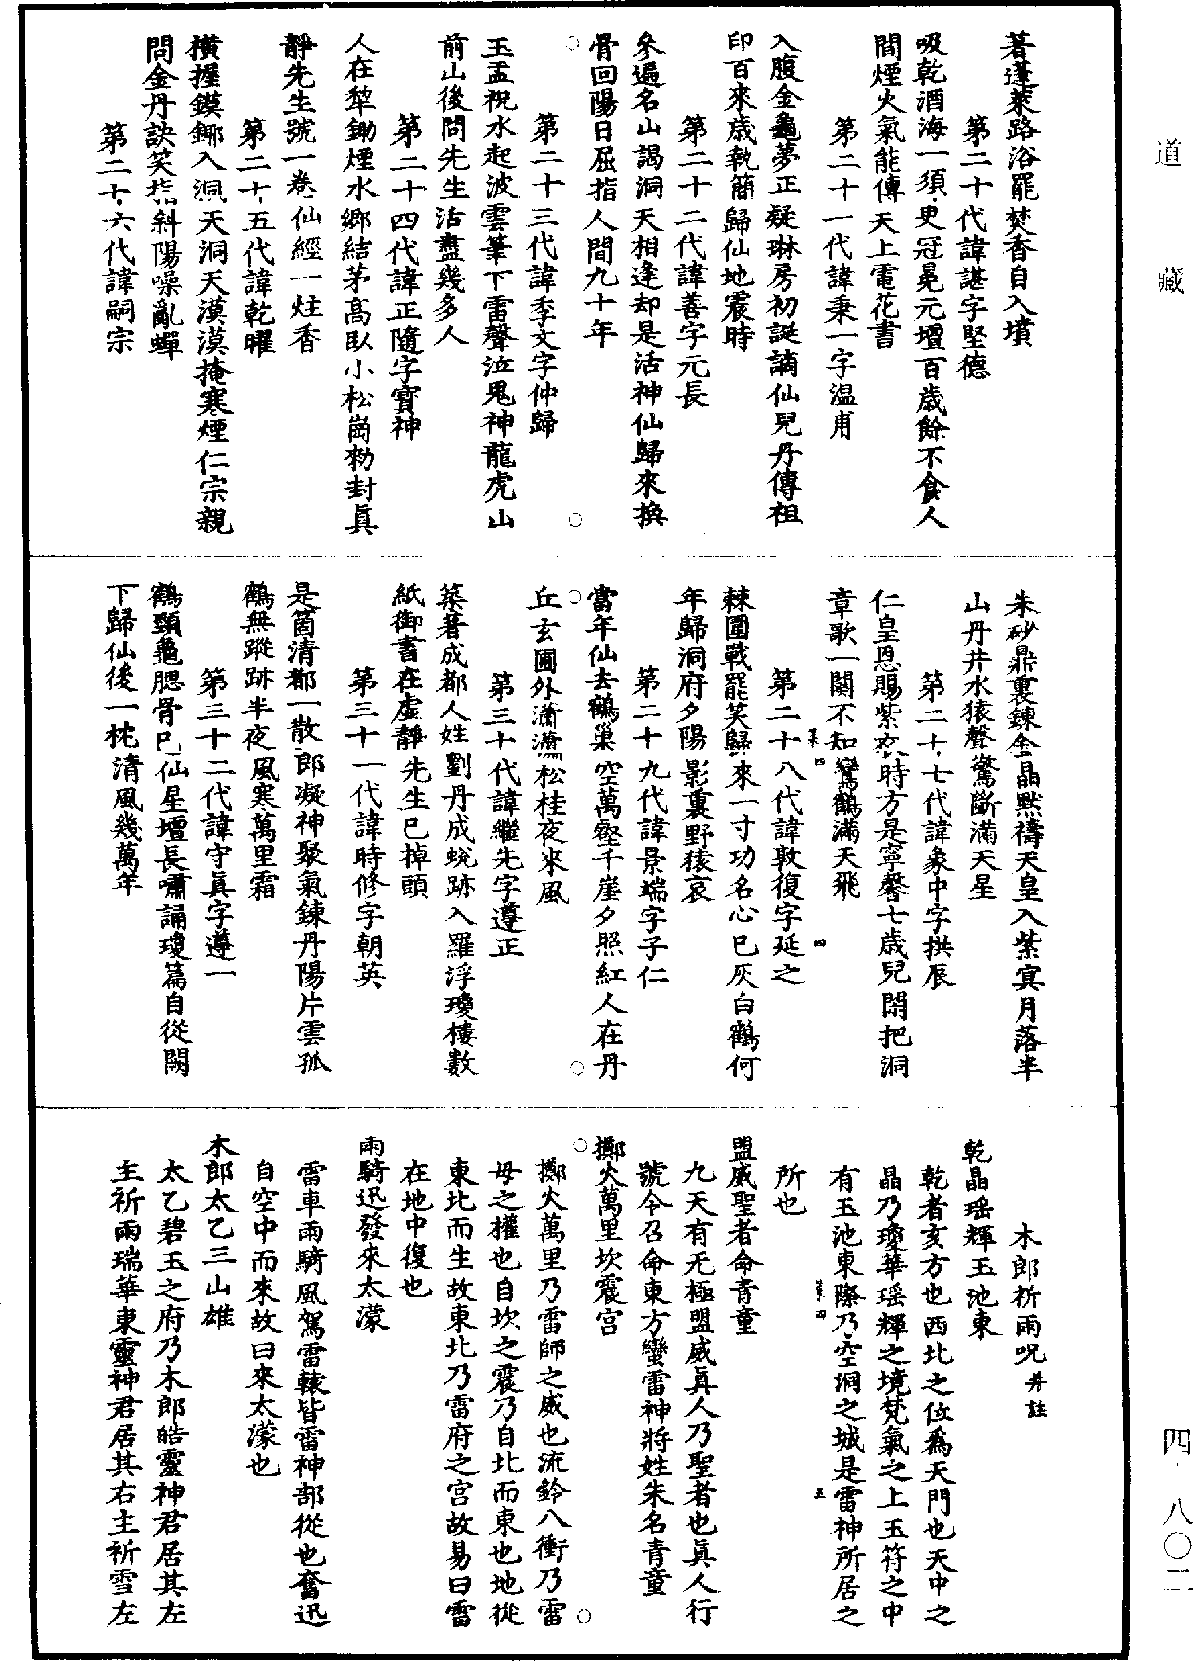 著蓬萊路浴罷焚香自入墳
第二十代諱諶字堅德
吸乾酒海一須更冠冕元壇百歲餘不食人
間煙火氣能傳天上電花書
第二十一代諱秉一字温甫
入腹金龜夢正疑琳房初誕謫仙兒丹傳祖
印百來歲執簡歸仙地震時
第二十二代諱善字元長
參遍名山謁洞天相逢却是活神仙歸來換
骨回陽日屈指人間九十年
第二十三代諱季文字仲歸
玉盂祝水起波雲筆下雷聲泣鬼神龍虎山
前山後問先生沽盡幾多人
第二十四代諱正隨字寶神
人在犂鋤煙水鄉結茅高臥小松崗勑封真
靜先生號一卷仙經一炷香
第二十五代諱乾曜
橫握鏌鎁入洞天洞天漠漠掩寒煙仁宗親
問金丹訣笑指斜陽噪亂蟬
第二十六代諱嗣宗
朱砂鼎裏鍊金晶默禱天皇入紫冥月落半
山丹井水猿聲驚斷滿天星
第二十七代諱象中字拱辰
仁皇恩賜紫衣時方是寧馨七歲兒閑把洞
章歌一闋不知鸞鶴滿天飛
第二十八代諱敦復字延之
棘圍戰罷笑歸來一寸功名心已灰白鶴何
年歸洞府夕陽影裏野猿哀
第二十九代諱景端字子仁
當年仙去鶴巢空萬壑千崖夕照紅人在丹
丘玄圃外瀟瀟松桂夜來風
第三十代諱繼先字遵正
築著成都人姓劉丹成蛻跡入羅浮瓊樓數
紙御書在虛靜先生已掉頭
第三十一代諱時修字朝英
是箇清都一散郎凝神聚氣鍊丹陽片雲孤
鶴無蹤跡半夜風寒萬里霜
第三十二代諱守真字遵一
鶴頸龜腮骨已仙星壇長嘯誦瓊篇自從闕
下歸仙後一枕清風幾萬年
木郎祈雨呪并註
乾晶瑶輝玉池東
乾者亥方也西北之位為天門也天中之
晶乃瓊華瑶輝之境梵氣之上玉符之中
有玉池東際乃空洞之城是雷神所居之
所也
盟威聖者命青童
九天有无極盟威真人乃聖者也真人行
號令召命東方蠻雷神將姓朱名青童
擲火萬里坎震宮
擲火萬里乃雷師之威也流鈴八衝乃雷
母之權也自坎之震乃自北而東也地從
東北而生故東北乃雷府之宮故易曰雷
在地中復也
雨騎迅發來太濛
雷車雨騎風駕雷轅皆雷神部從也奮迅
自空中而來故曰來太濛也
木郎太乙三山雄
太乙碧玉之府乃木郎皓靈神君居其左
主祈雨瑞華東靈神君居其右主祈雪左
道 藏
四·八〇二